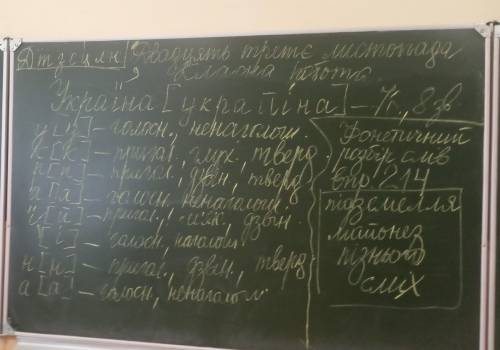 Д т з с ц л н Двадцять третє листопада
Класна робота.
Україна [украйіна] – 7б, 8 зв
у [у] – голосн., ненаголош.
к [к] – пригол., глух., тверд.
р [р] – пригол., дзвін., тверд
а [а] – голосн., ненаголош.
ї [й] – пригол., м'як., дзвін.
[і] – голосн., наголош.
н [н] – пригол., дзвін., тверд.
а [а] – голосн., ненаголош.
Фонетичний
розбір слів
впр. 214
підземелля
майонез
пізнього
сміх